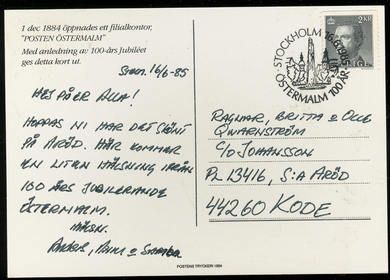 1 dec 1884 öppnades ett filialkontor,
"POSTEN ÖSTERMALM"
Med anledning av 100-års Jubiléet
ges detta kort ut.
Sthlm. 16/6-85
HEJ PÅ ER ALLA!
HOPPAS NI HAR DET SKÖNT
PÅ ÄRÖD. HÄR KOMMER
EN LITEN HÄLSNING IFRÅN
100 ÅRS JUBILERANDE
ÖSTERMALM.
HÄLSN.
STOCKHOLM
ÖSTERMALM 100 ÅR
2 KR
SVERIGE
RAGNAR, BRITTA o OLLE
QWARNSTRÖM
C/O JOHANSSON
PL 13416, S:A ÄRÖD
44260 KODE
POSTENS TRYCKERI 1984